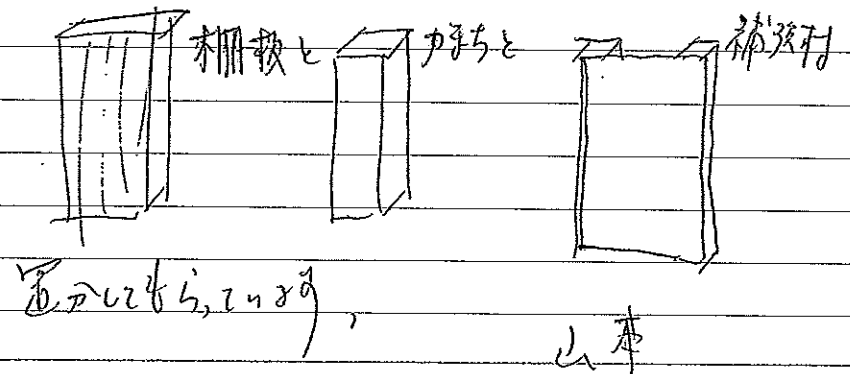 棚板と かまちと 補強材
してもらっています。
山本